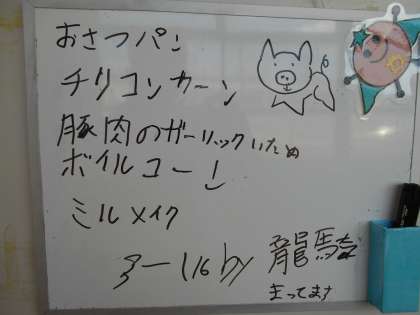 おさつパン
チリコンカーン
豚肉のガーリックいため
ボイルコーン
ミルメイク
by 龍馬
まってます